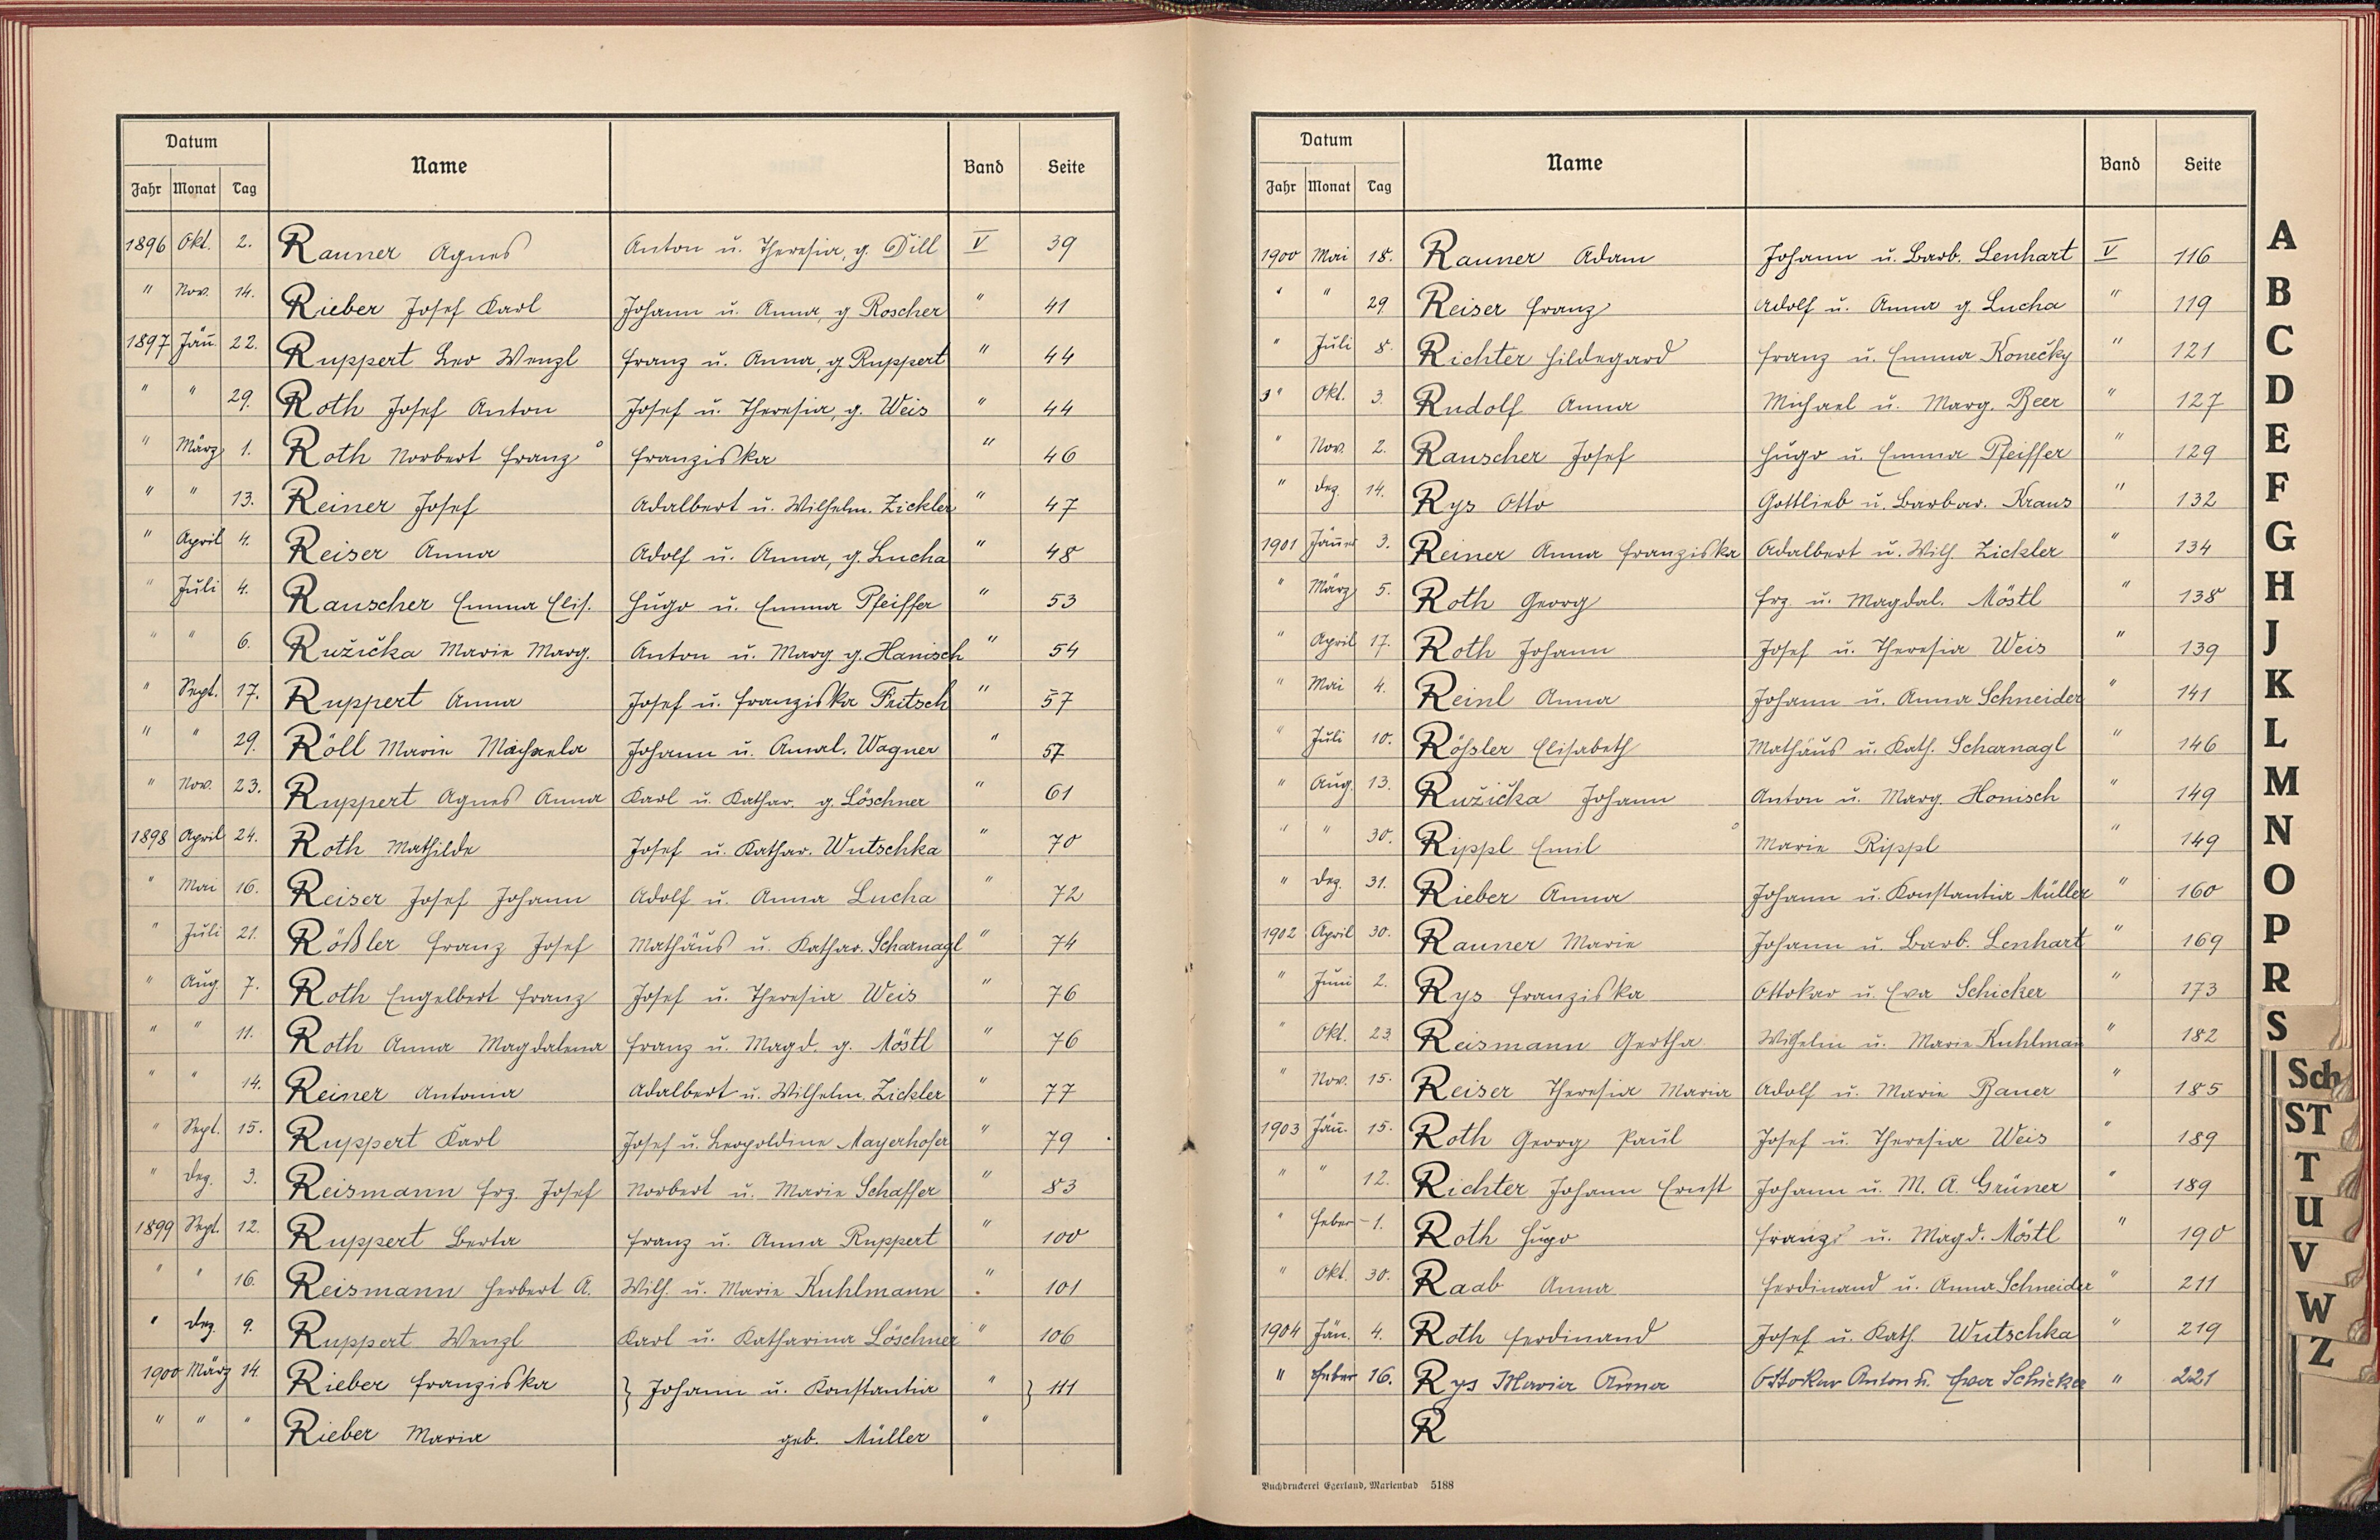 Datum Name Band Seite
Jahr Monat Tag
1896 Okt. 2. Rauner Agnes Anton u. Theresia, g. Dill V 39
" Nov. 14. Rieber Josef Karl Johann u. Anna, g Roscher " 41
1897 Jän. 22. Ruppert Leo Wenzl Franz u. Anna, g. Ruppert " 44
" " 29. Roth Josef Anton Josef u. Theresia, g. Weis " 44
" März 1. Roth Norbert Franz ° Franziska " 46
" " 13. Reiner Josef Adalbert u. Wilhelm. Zickler " 47
" April 4. Reiser Anna Adolf u. Anna, g. Lucha " 48
" Juli 4. Rauscher Emma Elis. Hugo u. Emma Pfeiffer " 53
" " 6. Ružička Marie Marg. Anton u. Marg. g. Hanisch " 54
" Sept. 17. Ruppert Anna Josef u. Franziska Fritsch " 57
" " 29. Röll Marie Michaela Johann u. Amal. Wagner " 57
" Nov. 23. Ruppert Agnes Anna Karl u. Kathar. g. Löschner " 61
1898 April 24. Roth Mathilde Josef u. Kathar. Wutschka " 70
" Mai 16. Reiser Josef Johann Adolf u. Anna Lucha " 72
" Juli 21. Rößler Franz Josef Mathäus u. Kathar. Scharnagl " 74
" Aug. 7. Roth Engelbert Franz Josef u. Theresia Weis " 76
" " 11. Roth Anna Magdalena Franz u. Magd. g. Möstl " 76
" " 14. Reiner Antonia Adalbert u. Wilhelm. Zickler " 77
" Sept. 15. Ruppert Karl Josef u. Leopoldine Mayerhofer " 79
" Dez. 3. Reismann Frz. Josef Norbert u. Marie Schaffer " 83
1899 Sept. 12. Ruppert Berta Franz u. Anna Ruppert " 100
" " 16. Reismann Herbert A. Wilh. u. Marie Kuhlmann " 101
" Dez. 9. Ruppert Wenzl Karl u. Katharina Löschner " 106
1900 März 14. Rieber Franziska } Johann u. Konstantia " } 111
" " " Rieber Maria geb. Müller "
Datum Name Band Seite
Jahr Monat Tag
1900 Mai 18. Rauner Adam Johann u. Barb. Lenhart V 116
" " 29. Reiser Franz Adolf u. Anna g. Lucha " 119
" Juli 8. Richter Hildegard Franz u. Emma Konečky " 121
" Okt. 3. Rudolf Anna Michael u. Marg. Beer " 127
" Nov. 2. Rauscher Josef Hugo u. Emma Pfeiffer " 129
" Dez. 14. Rys Otto Gottlieb u. Barbar. Kraus " 132
1901 Jäner 3. Reiner Anna Franziska Adalbert u. Wilh. Zickler " 134
" März 5. Roth Georg Frz. u. Magdal. Möstl " 138
" April 17. Roth Johann Josef u. Theresia Weis " 139
" Mai 4. Reinl Anna Johann u. Anna Schneider " 141
" Juli 10. Rößler Elisabeth Mathäus u. Kath. Scharnagl " 146
" Aug. 13. Ružička Johann Anton u. Marg. Honisch " 149
" " 30. Rippl Emil ° Marie Rippl " 149
" Dez. 31. Rieber Anna Johann u. Konstantia Müller " 160
1902 April 30. Rauner Marie Johann u. Barb. Lenhart " 169
" Juni 2. Rys Franziska Ottokar u. Eva Schicker " 173
" Okt. 23. Reismann Gertha Wilhelm u. Marie Kuhlman " 182
" Nov. 15. Reiser Theresia Maria Adolf u. Marie Bauer " 185
1903 Jän. 15. Roth Georg Paul Josef u. Theresia Weis " 189
" " 12. Richter Johann Ernst Johann u. M. A. Grüner " 189
" Feber 1. Roth Hugo Franz u. Magd. Möstl " 190
" Okt. 30. Raab Anna Ferdinand u. Anna Schneider " 211
1904 Jän. 4. Roth Ferdinand Josef u. Kath. Wutschka " 219
" Feber 16. Rys Maria Anna Ottokar Anton u. Eva Schicker " 221
R
Buchdruckerei Egerland, Marienbad 5188
A
B
C
D
E
F
G
H
J
K
L
M
N
O
P
R
S
Sch
ST
T
U
V
W
Z